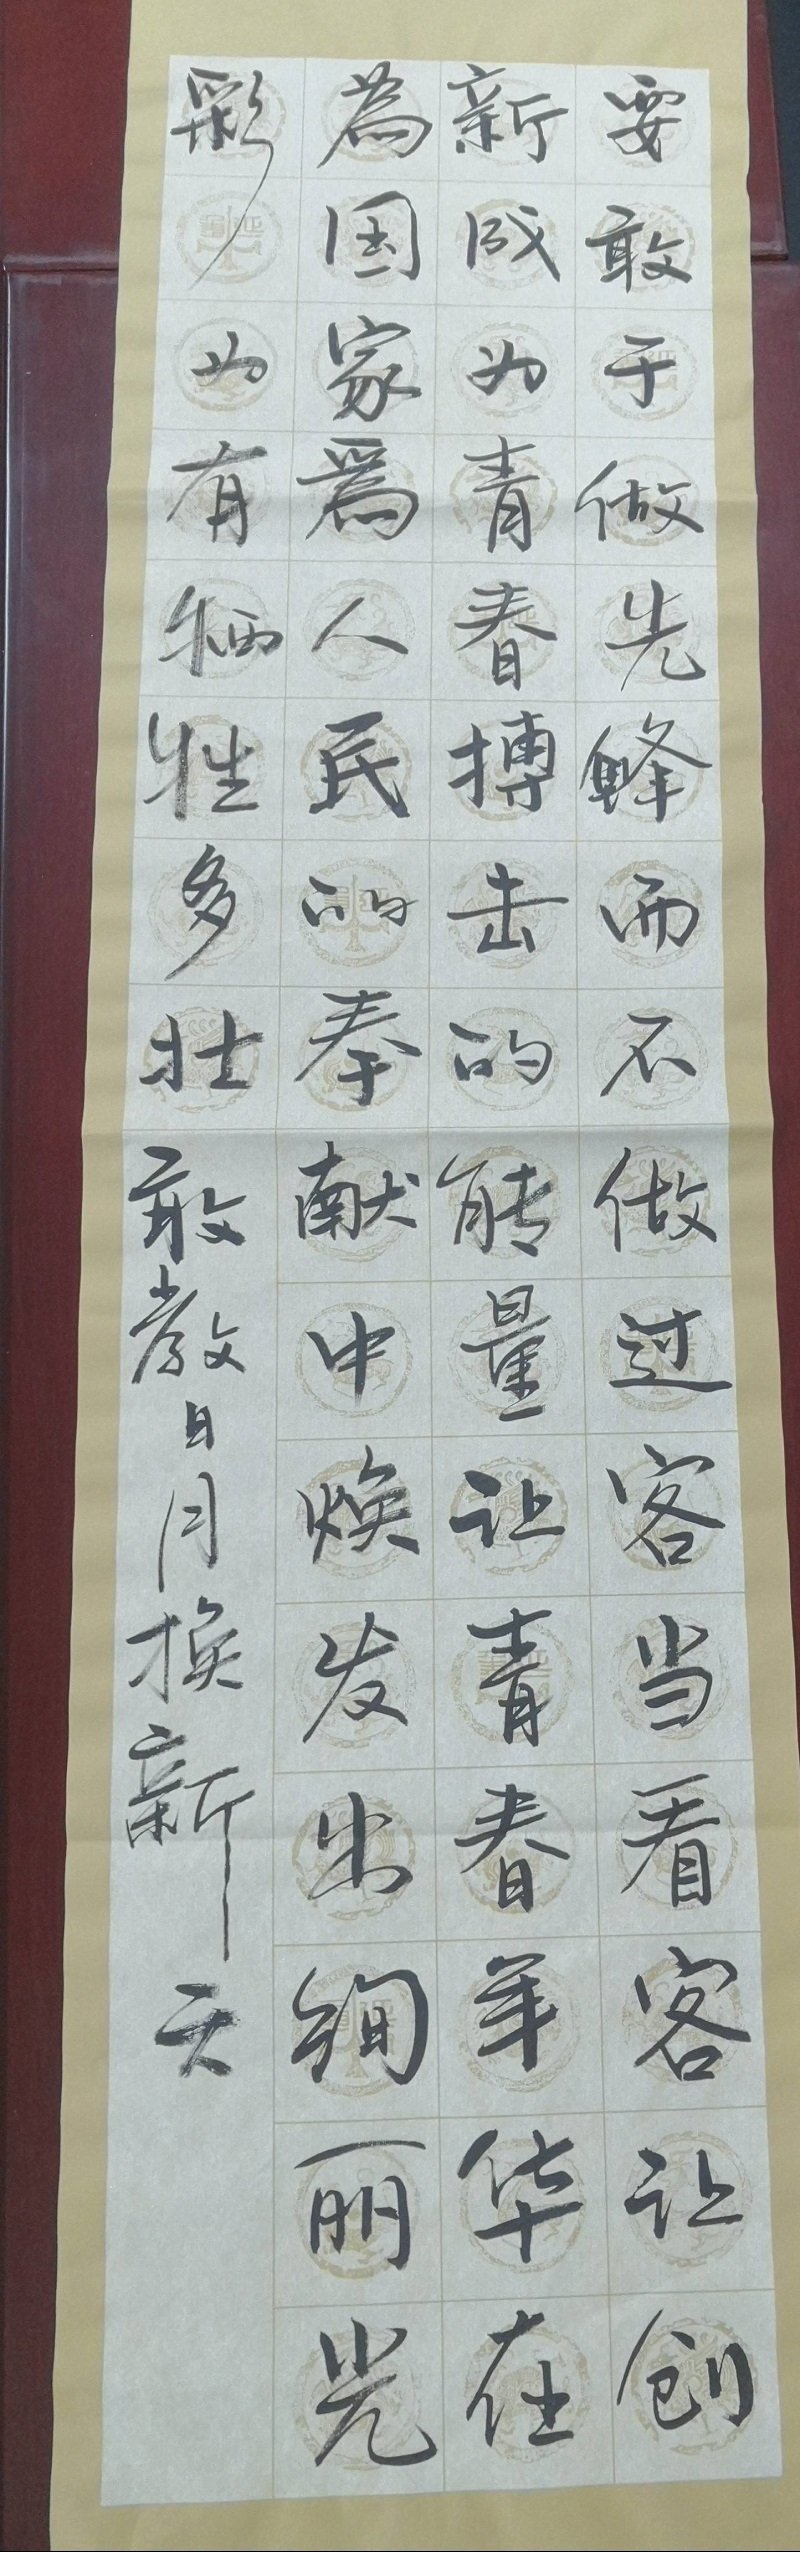 要敢于做先锋而不做过客当看客让创
新成为青春搏击的能量让青春年华在
為国家爲人民的奉献中焕发出绚丽光
彩为有牺牲多壮敢教日月换新天